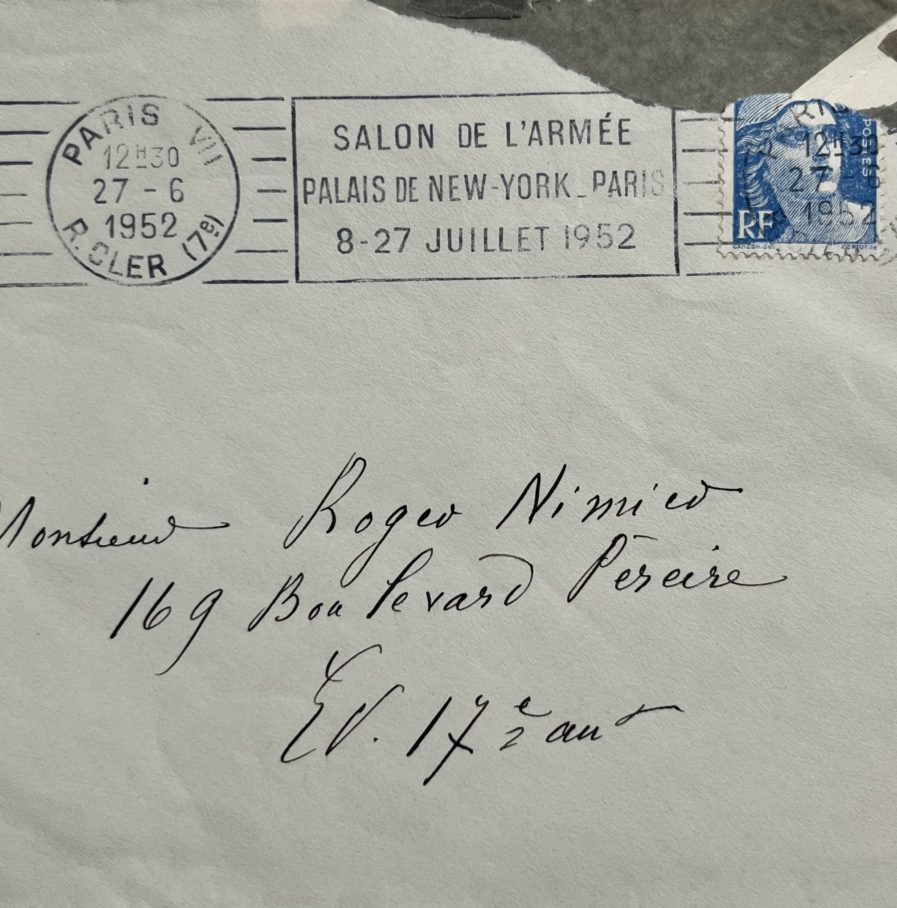 PARIS VII
12H30
27 - 6
1952
R. CLER (7e)
SALON DE L'ARMÉE
PALAIS DE NEW-YORK _ PARIS
8-27 JUILLET 1952
POSTES
RF
12H30
27 - 6
1952
Monsieur Roger Nimier
169 Boulevard Péreire
EV. 17e arrt